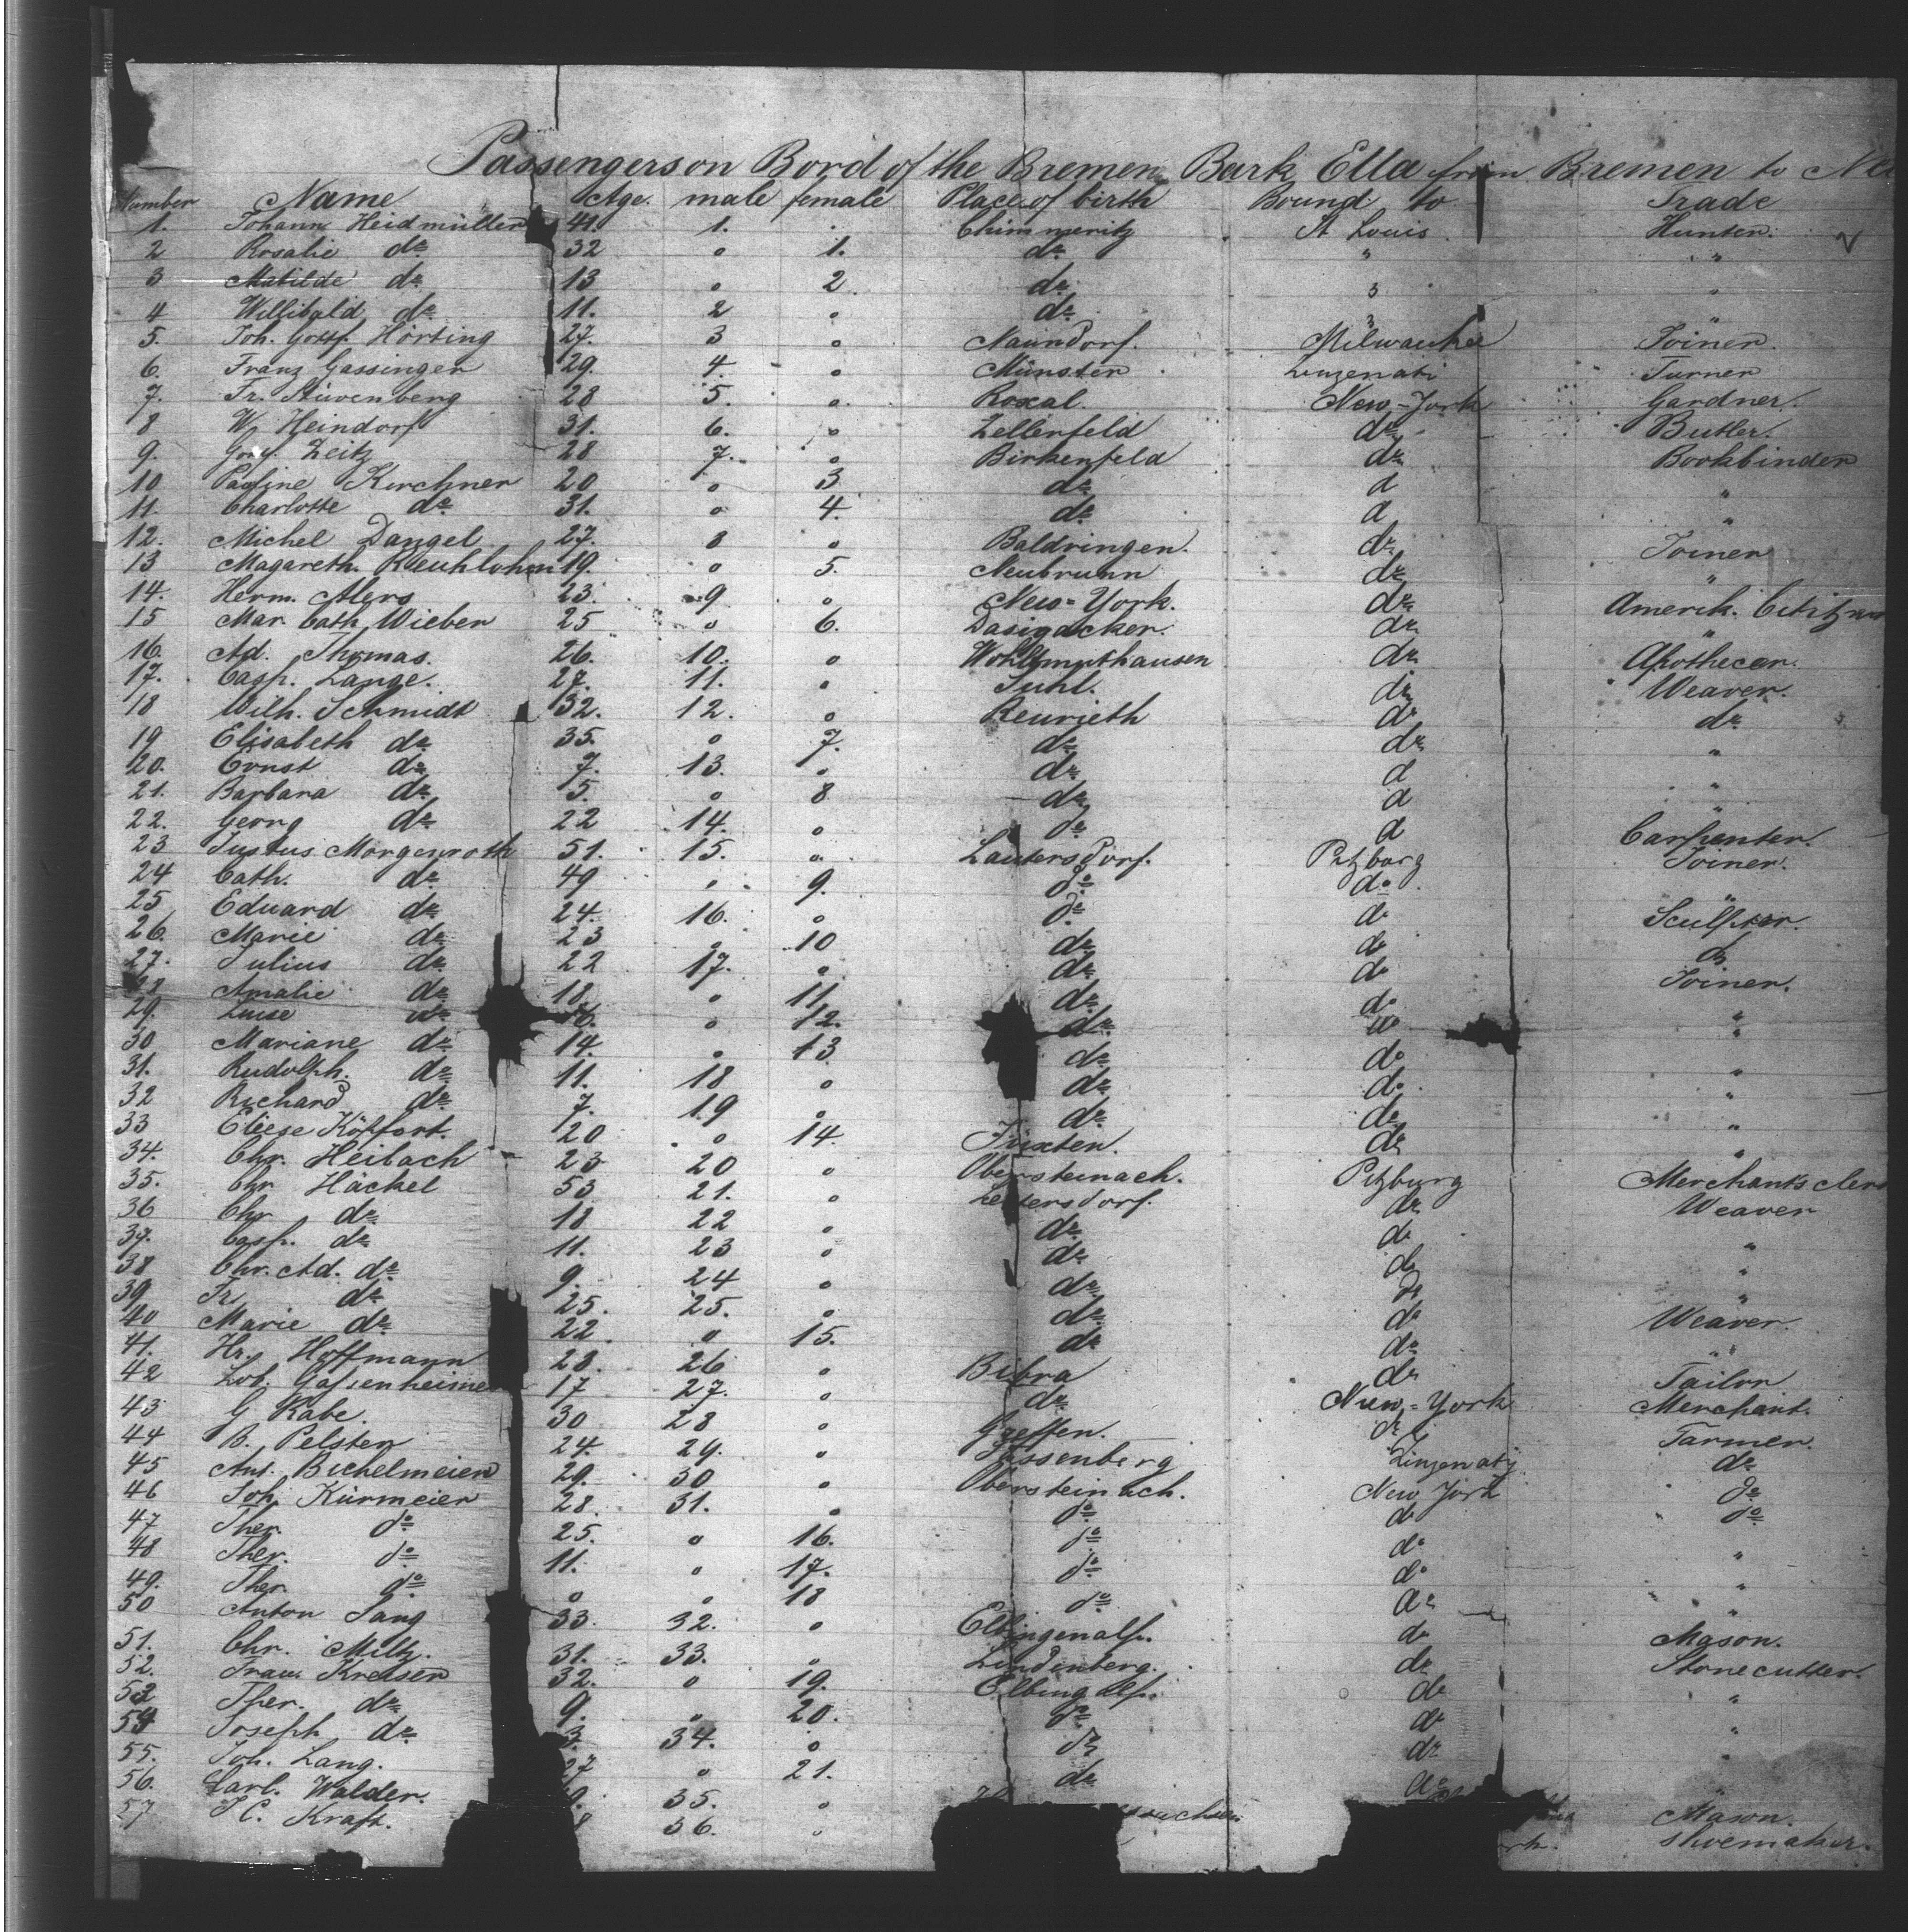 Passengers on Bord of the Bremen Bark Ella from Bremen to
Number Name Age. male female Place of birth Bound to Trade
1. Johann Heidmüller 41. 1. . Chimmeritz St Louis Hunter.
2 Rosalie do 32 o 1. do " "
3 Matilde do 13 o 2 do " "
4 Willibald do 11. 2 o do " "
5. Joh. Gottf. Hörting 27. 3 o Naundorf. Milwaukee Joiner.
6. Franz Gassinger 29. 4. o Münster Zinzenati Turner
7. Fr. Stüvenberg 28 5. o. Roxal. New-York Gardner.
8 W. Heindorf 31. 6. o Zellerfeld do Butler.
9. Zeitz 28 7. o Birkenfeld do Bookbinder
10 Pauline Kirchner 20 o 3 do d "
11. Charlotte do 31. o 4. do d "
12. Michel Dangel 27. 8 o Baldringen. do Joiner
13 Magareth. 19. o 5. Neubrunn do "
14. Herm. Alers 23. 9 o New-York. do Amerik.
15 Mar. Cath. Wieber 25 o 6. do "
16. Ad. Thomas. 26. 10. o Wohlmuthausen do Apothecar.
17. Casp. Lange. 27. 11. o Suhl. do Weaver.
18 Wilh. Schmidt 32. 12. o Reurieth do do
19 Elisabeth do 35. o 7. do do "
20. Ernst do 7. 13. o do d "
21. Barbara do 5. o 8 do d "
22. Georg do 22 14. o do d Carpenter.
23 Justus Morgenroth 51. 15. o. Lautersdorf. Pitzburg Joiner.
24 Cath. do 49 o 9. do do "
25 Eduard do 24. 16. o do do Sculpter.
26. Marie do 23 o 10 do do do
27. Julius do 22 17. o do do Joiner.
28 Amalie do 18. o 11. do do "
29. Luise do 16. o 12. do do "
30 Mariane do 14. o 13. do do "
31. Rudolph. do 11. 18 o do do "
32 Richard do 7. 19 o do do "
33 Eliese Köpfort. 20 o 14. do "
34. Chr. Heibach 23 20 o Obersteinach. Pitzburg Merchants
35. Chr Häckel 53 21. o do Weaver
36 Chr do 18 22 o do do "
37. Casp. do 11. 23 o do do "
38 Chr. Ad. do 9. 24 o do do "
39 Fr. do 25. 25. o do do Weaver.
40 Marie do 22 o 15. do do "
41. Hr. Hoffmann 23. 26 o Bibra do Tailor
42 17 27. o do New-York Merchant.
43 G Rabe. 30 28 o Greffen. do Farmer.
44 B. Pelster 24. 29. o Zinzenati do
45 Ant. Bichelmeier 29. 30 o Obersteinach. New York do
46 Joh. Kürmeier 28. 31. o do do do
47 Ther. do 25. o 16. do do "
48 Ther. do 11. o 17. do do "
49. Ther. do o o 18 do do "
50 Anton Lang 33. 32. o Elbingenalp. do Mason.
51. Chr. Miltz. 31. 33. o Lindenberg. do Stonecutter.
52. Franz. Kreiser 32. o 19. Elbingalp. do "
53 Ther. do 9. o 20. do do "
54 Joseph do 3. 34. o do do "
55. Joh. Lang. 27 o 21. do do "
56. Carl. Walder. 35. o Mason.
57 Kraft. 36. o Shoemaker.